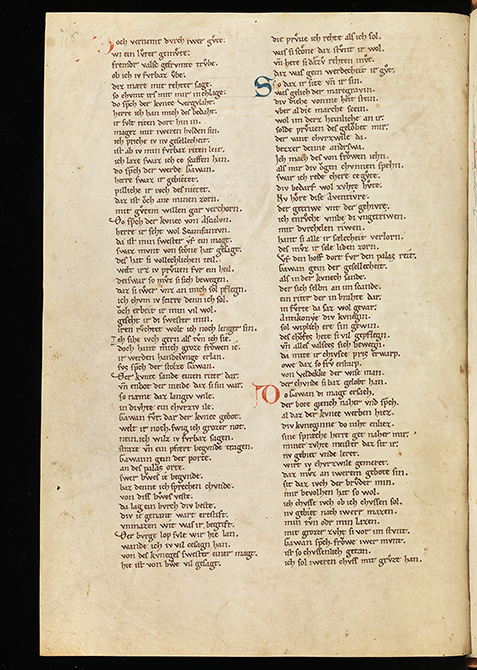 Doch vernemt dvrch iwer gv̊te.
wi ein lvter gemv̊te.
fremder valsc gefrvmte trv̊be.
ob ich iv fvrbaz v̊be.
diz mære mit rehter sage.
so chvmt irs mit mir in chlage.
do spͣch der kvnec vergvlaht.
herre ich han mich des bedaht.
ir svlt riten dort hin in.
magez mit iweren hvlden sin.
ich priche iv nv gesellecheit.
ist ab iv min fvrbaz riten leit.
ich laze swaz ich ce scaffen han.
do spͣch der werde Gawan.
herre swaz ir gebietet.
pilliche ir iwch des nietet.
daz ist ovch ane minen zorn.
mit gv̊tem willen gar verchorn.
Do spͣch der kvnec von ascalvn.
herre ir seht wol Scamfanzvn.
da ist min swester vf ein magt.
swaz mvnt von scone hat gesagt.
des hat si vollechlichen teil.
welt irz iv prv̊ven fvr ein heil.
deiswar so mv̊z si sich bewegen.
daz si iwer vnz an mich sol pflegn.
ich chvm iv sciere denn ich sol.
ovch erbeit ir min vil wol.
geseht ir di swester min.
iren rv̊chtet wolt ich noch lenger sin.
Ich sihe ivch gern als tvn ich sie.
doch hant mich groze frowen ie.
ir werden handelvnge erlan.
svs spͣch der stolze Gawan.
Der kvnec sande einen riter dar.
vn̄ enbot der meide daz si sin war.
so næme daz langiv wile.
in divhte ein chvrziv ile.
Gawan fvr dar der kvnec gebot.
welt ir noch swig ich grozer not.
nein ich wilz iv fvrbaz sagen.
straze vn̄ ein pfært begvnde tragen.
Gawann gein der porte.
an des palas orte.
swer bwes ie begvnde.
baz denne ich sprechen chvnde.
von diss bwes veste.
da lag ein bvrch div beste.
div ie genant wart ertstift.
vnmazen wit was ir begrift.
Der bvrge lop svle wir hie lan.
wande ich iv vil cesagn han.
von des kvneges swester einer magt.
hie ist von bwe vil gesagt.
die prv̊ve ich rehte als ich sol.
was si scone daz stv̊nt ir wol.
vn̄ hete si dar zv̊ rehten mv̊t.
daz was gein werdecheit ir gv̊t.
So daz ir site vn̄ ir sin.
was gelich der maregravin.
div diche von me heitstein.
vber al die marche scein.
wol im derz heinliche an ir.
solde prv̊ven des gelovbet mir.
der vant chvrzwile da.
bezzer denne anderswa.
Ich mach des von frowen iehn.
als mir div ogen chvnnen spehn.
swar ich rede chere ce gv̊te.
div bedarf wol zvhte hv̊te.
Nv hore dise aventivre.
der getriwe vnt der gehivre.
ich enrv̊che vmbe di vngetriwen.
mit dvrchelen riwen.
hant si alle ir sælecheit verlorn.
des mv̊z ir sele liden zorn.
Vf den hoff dort fvr den palas reit.
Gawan gein der gesellecheit.
als in der kvnech sande.
der sich selbn an im scande.
ein riter der in brahte dar.
in fv̊rte da saz wol gevar.
Antikonye div kvnegin.
sol wiplich ere sin gewin.
des chofes hete si vil gepflegn.
vn̄ alles valsces sich bewegn.
da mite ir chvisce pris erwarp.
owe daz so frv̊ erstarp.
von Veldekke der wise man.
der chvnde si baz gelobt han.
Do Gawan di magt ersach.
der bote giench naher vnd spͣch.
al daz der kvnec werben hiez.
div kvneginne do niht enliez.
sine spræche herre get naher mir.
miner zvhte meister daz sit ir.
nv gebiet vnde leret.
wirt iv chvrzwile gemeret.
daz mv̊z an iwerem gebote sin.
sit daz ivch der brv̊der min.
mir bevolhen hat so wol.
ich chvsse ivch ob ich chvssen sol.
nv gebiet nach iwerr mazen.
min tv̊n oder min lazen.
mit grozer zvht si vor im stv̊nt.
Gawan spͣch frowe iwer mvnt.
ist so chvssenlich getan.
ich sol iweren chvss mit grv̊ze han.